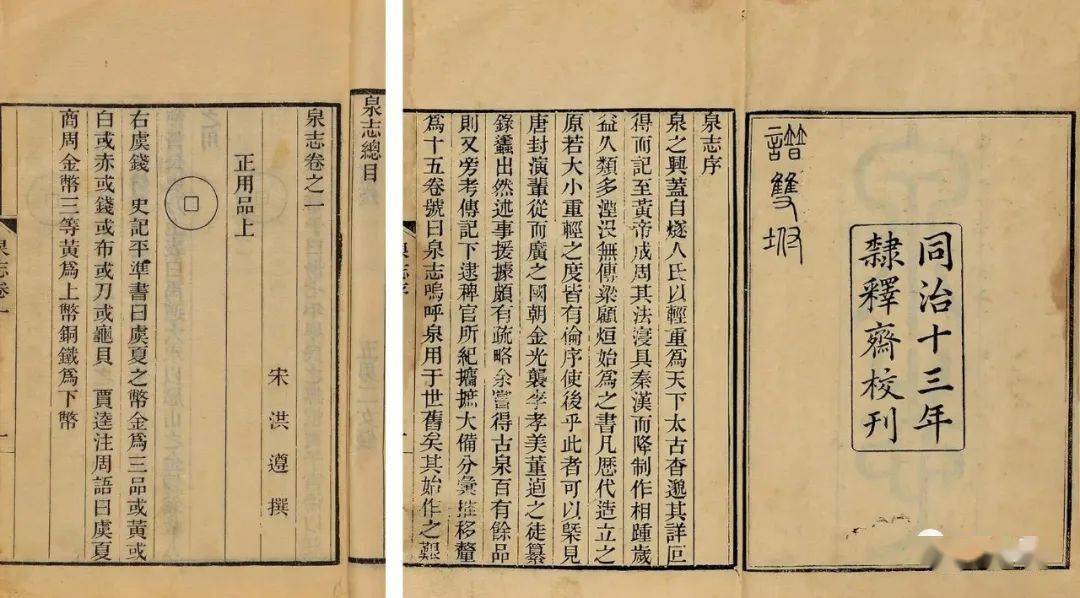 同治十三年
隸釋齋校刊
譜雙坿
泉志序
泉之興蓋自燧人氏以輕重爲天下太古杳邈其詳叵
得而記至黃帝成周其法寖具秦漢而降制作相踵歲
益久類多湮沒無傳梁顧烜始爲之書凡歷代造立之
原若大小重輕之度皆有倫序使後乎此者可以槩見
唐封演輩從而廣之國朝金光襲李孝美董逌之徒纂
錄蠭出然述事援據頗有疏略余嘗得古泉百有餘品
則又旁考傳記下逮稗官所紀攟摭大備分彙推移釐
爲十五卷號曰泉志嗚呼泉用于世舊矣其始作之艱
泉志序
泉志總目
泉志卷之一
宋洪遵撰
正用品上
右虞錢 史記平準書曰虞夏之幣金爲三品或黃或
白或赤或錢或布或刀或龜貝 賈逵注周語曰虞夏
商周金幣三等黃爲上幣銅鐵爲下幣
泉志卷一
一